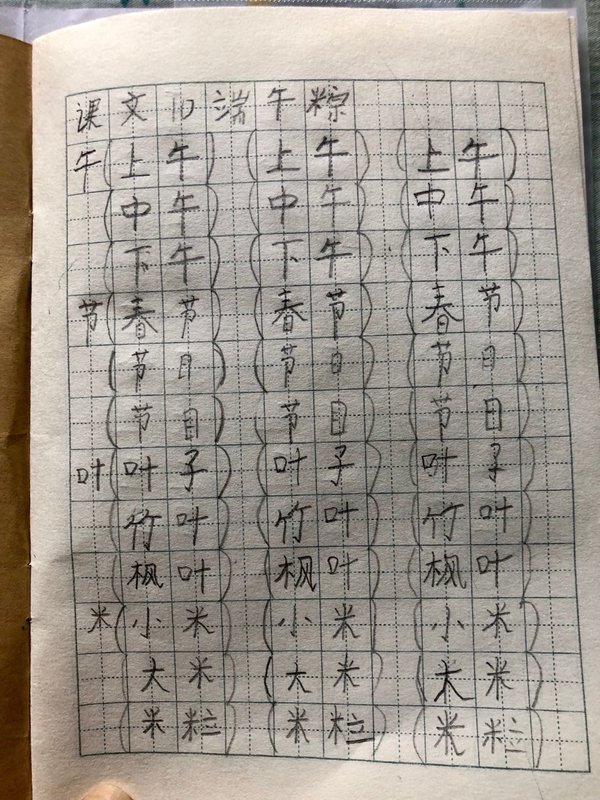 课文10端午粽
午(上午)(上午)(上午)
(中午)(中午)(中午)
(下午)(下午)(下午)
节(春节)(春节)(春节)
(节日)(节日)(节日)
(节目)(节目)(节目)
叶(叶子)(叶子)(叶子)
(竹叶)(竹叶)(竹叶)
(枫叶)(枫叶)(枫叶)
米(小米)(小米)(小米)
(大米)(大米)(大米)
(米粒)(米粒)(米粒)